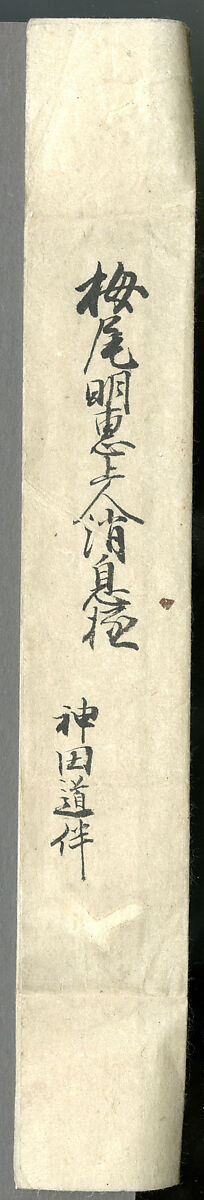 栂尾明恵上人消息極
神田道伴